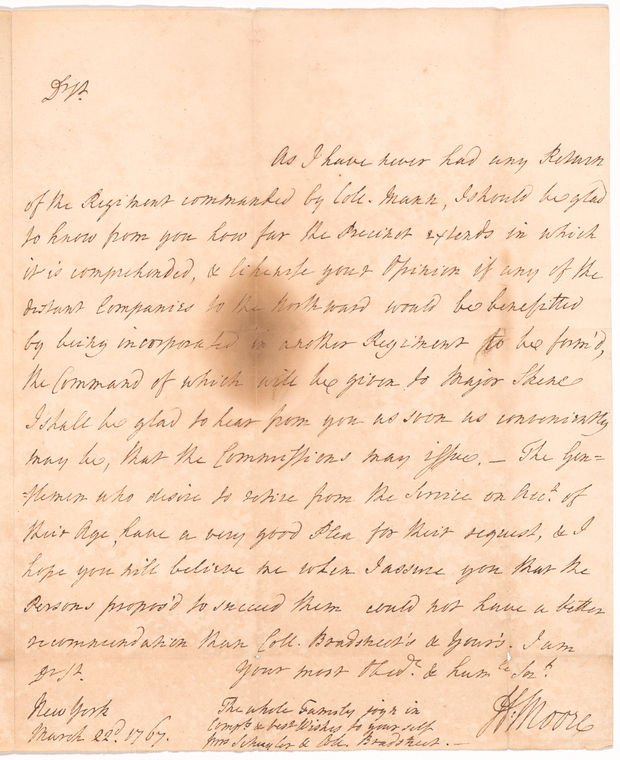 Dr Sr.
As I have never had any Return
of the Regiment commanded by Coll. Mann, I should be glad
to know from you how far the Precinct extends in which
it is comprehended, & likewise your Opinion if any of the
distant Companies to the Northward would be benefitted
by being incorporated in another Regiment to be form'd,
the Command of which will be given to Major Skene
I shall be glad to hear from you as soon as conveniently
may be, that the Commissions may issue. — The Gen=
=tlemen who desire to retire from the Service on Acct. of
their Age, have a very good Plea for their request, & I
hope you will believe me when I assure you that the
Persons propos'd to succeed them could not have a better
recommendation than Coll. Bradstreet's & Yours. I am
Dr Sr.
Your most Obedt. & humble Servt.
New York
March 22d. 1767.
The whole Family joyn in
Compts. & best Wishes to yourself
Mrs Schuyler & Col. Bradstreet. —
H: Moore